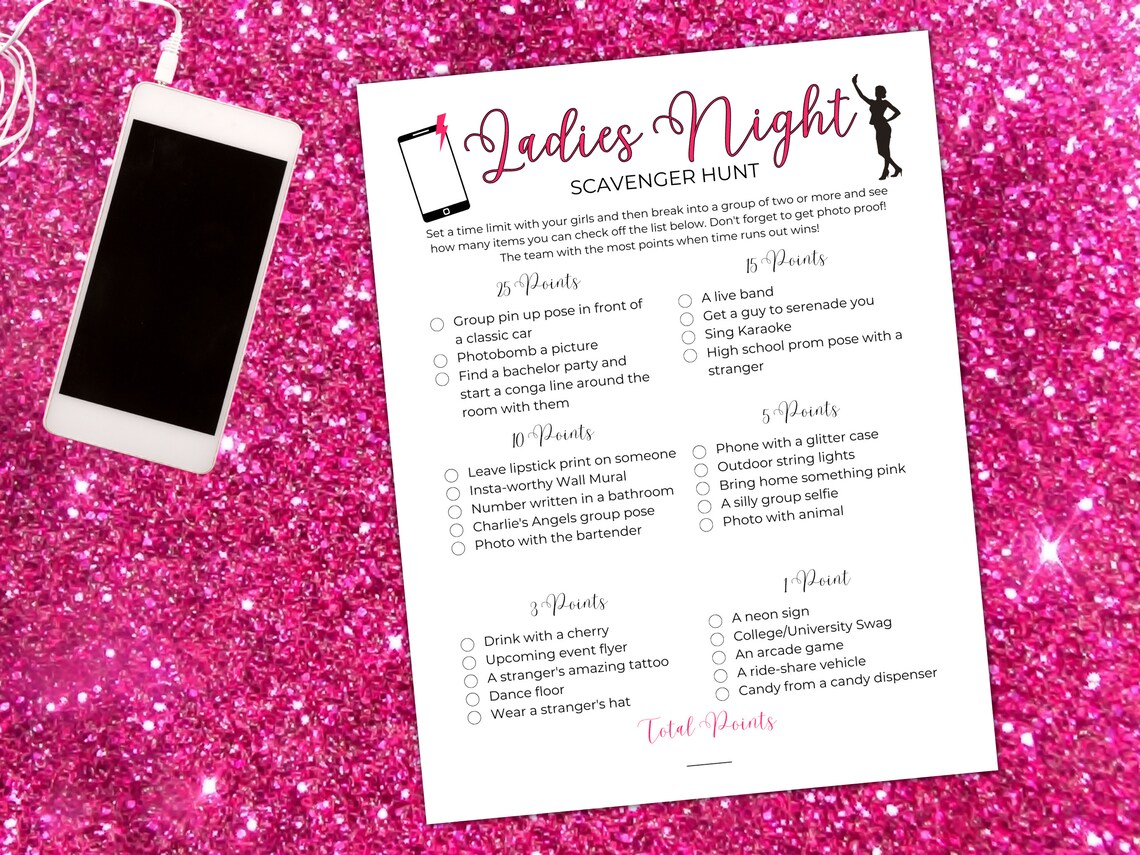 Ladies Night
SCAVENGER HUNT
Set a time limit with your girls and then break into a group of two or more and see
how many items you can check off the list below. Don't forget to get photo proof!
The team with the most points when time runs out wins!
25 Points
Group pin up pose in front of
a classic car
Photobomb a picture
Find a bachelor party and
start a conga line around the
room with them
15 Points
A live band
Get a guy to serenade you
Sing Karaoke
High school prom pose with a
stranger
10 Points
Leave lipstick print on someone
Insta-worthy Wall Mural
Number written in a bathroom
Charlie's Angels group pose
Photo with the bartender
5 Points
Phone with a glitter case
Outdoor string lights
Bring home something pink
A silly group selfie
Photo with animal
3 Points
Drink with a cherry
Upcoming event flyer
A stranger's amazing tattoo
Dance floor
Wear a stranger's hat
1 Point
A neon sign
College/University Swag
An arcade game
A ride-share vehicle
Candy from a candy dispenser
Total Points